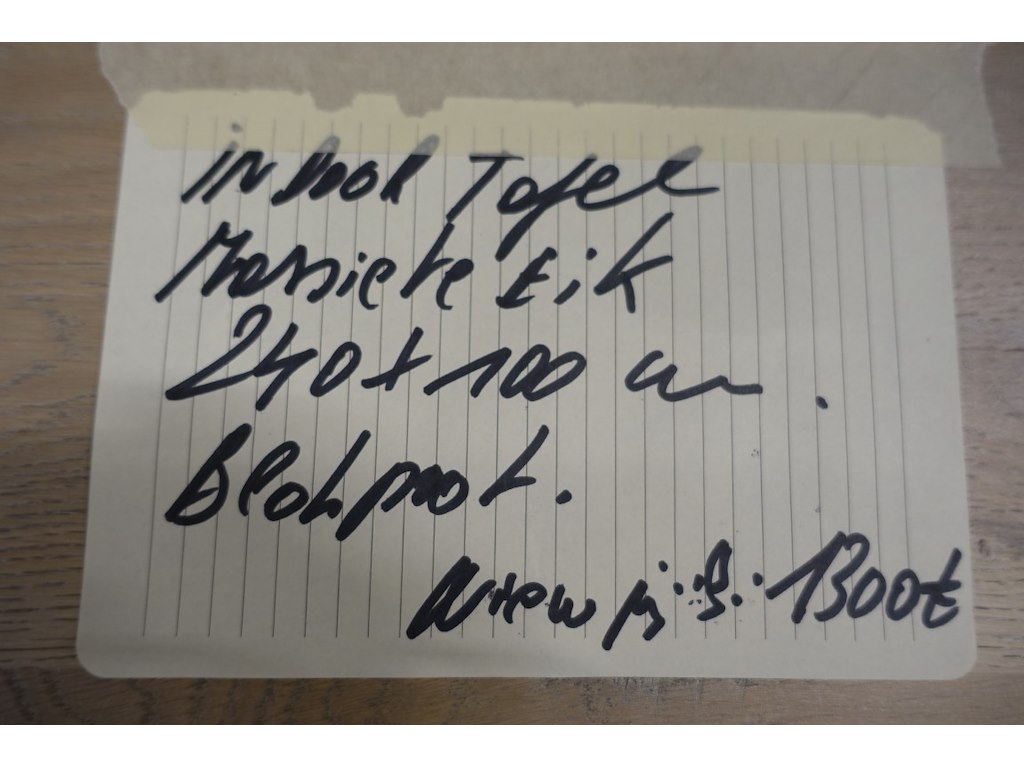 INDOOR Tafel
Massieve Eik
240 x 100 cm.
Bladpoot.
Nieuw prijs: 1300€